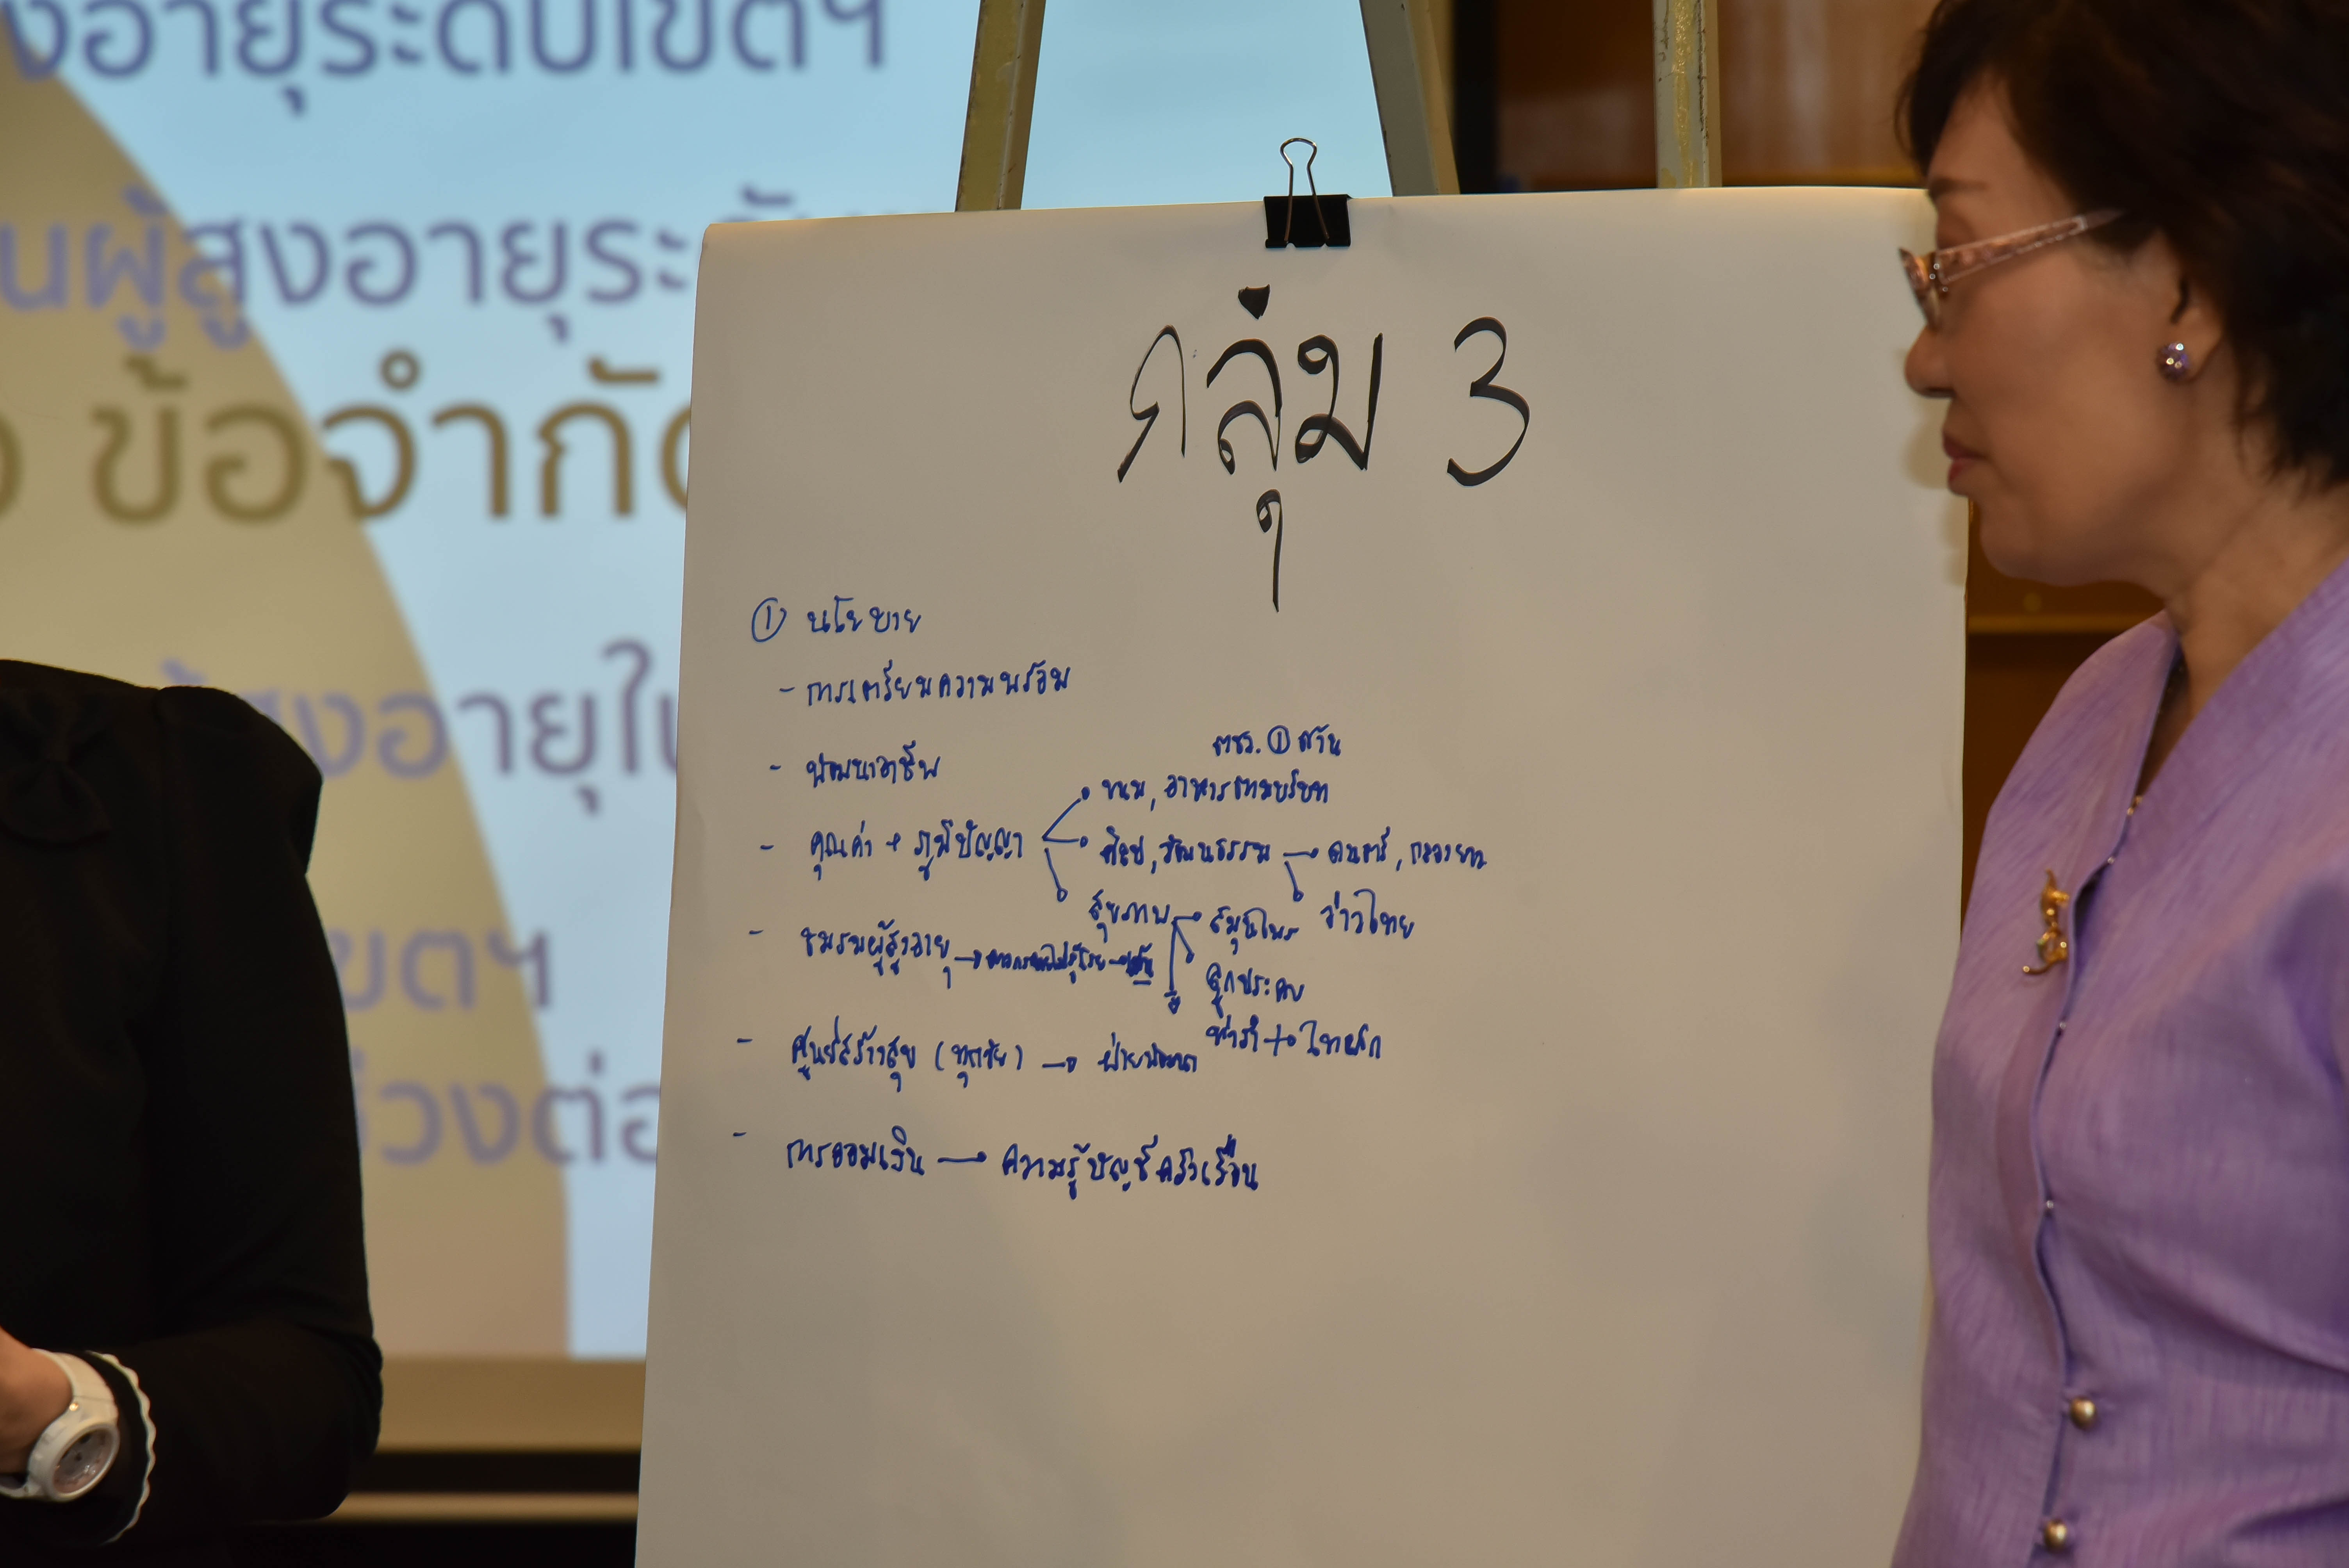 งอายุระดับเขตฯ
นผู้สูงอายุระ
ข้อจำกั
สูงอายุใ
ขตฯ
ช่วงต่อ
กลุ่ม 3
① นโยบาย
- การเตรียมความพร้อม
- พัฒนาอาชีพ
ตชว. ① ด้าน
- คุณค่า + ภูมิปัญญา
• ขนม, อาหารตามบริบท
• ศิลป, วัฒนธรรม → ดนตรี, กลองยาว
ว่าวไทย
สุขภาพ → สมุนไพร
ลูกประคบ
ท่ารำ + ไทเก๊ก
- ชมรมผู้สูงอายุ →
- ศูนย์สร้างสุข (ทุกวัย) → ฝ่ายพัฒนา
- การออมเงิน → ความรู้บัญชีครัวเรือน